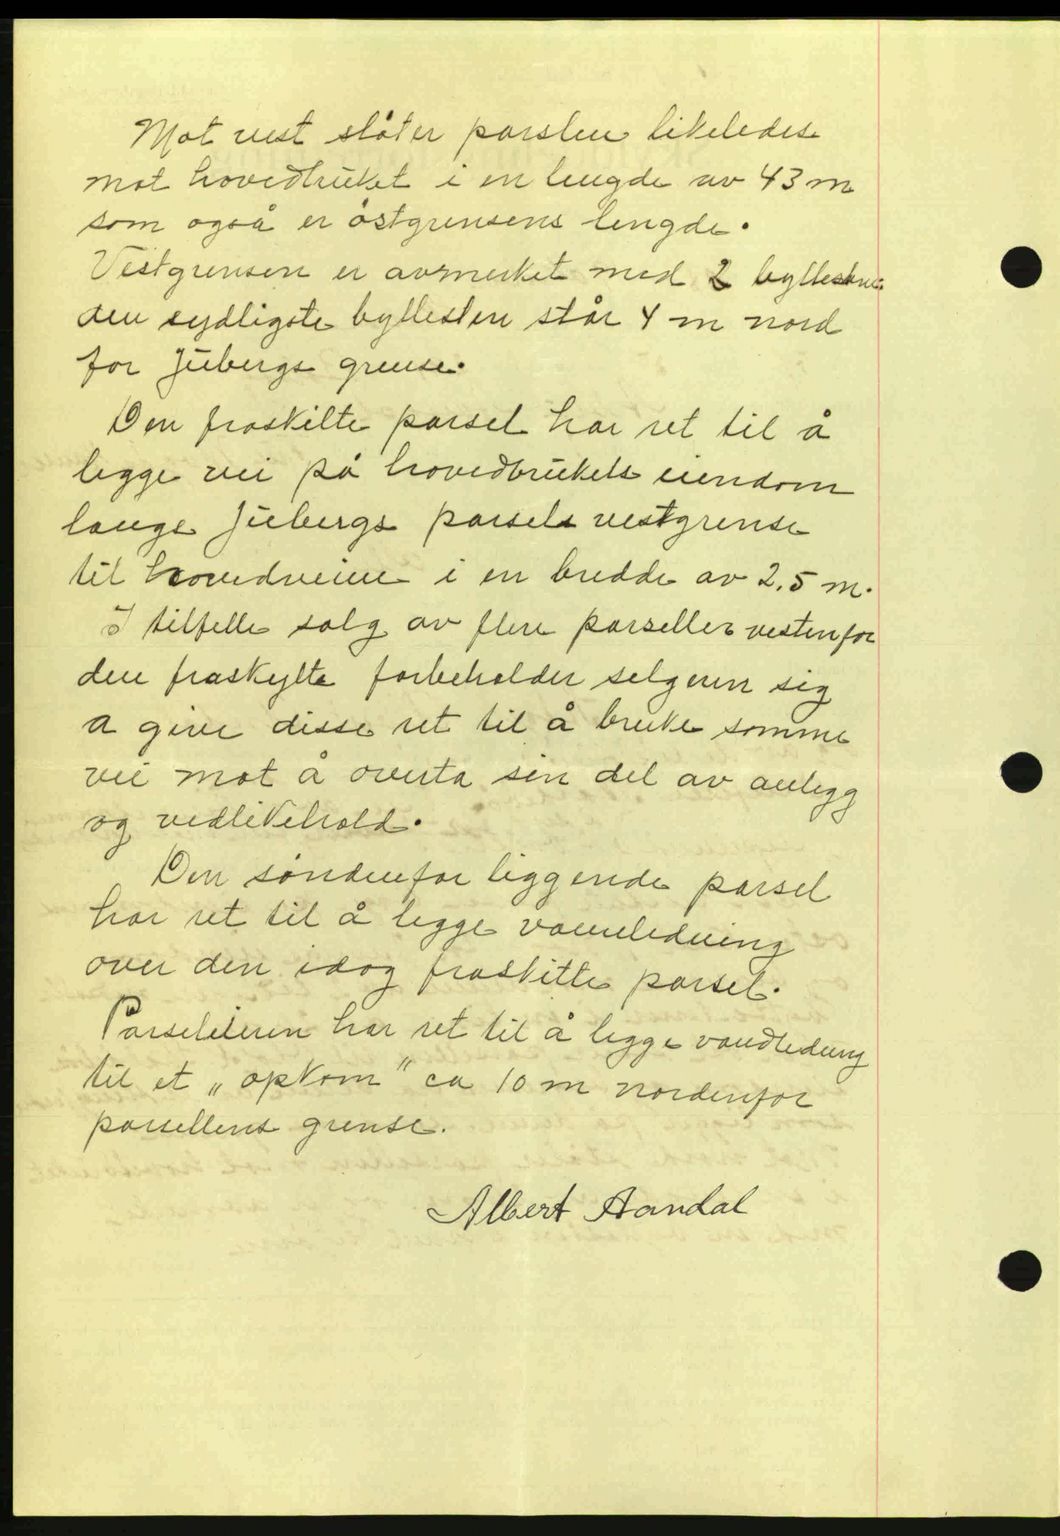 Mot vest støter parslen likeledes
mot hovedbruket i en lengde av 43 m
som også er østgrensens lengde.
Vestgrensen er avmerket med 2 byllestene
den sydligste byllesten står 4 m nord
for Jubergs grense.
Den fraskilte parsel har ret til å
legge vei på hovedbrukets eiendom
langs Jubergs parsels vestgrense
til hovedveien i en bredde av 2,5 m.
I tilfelle salg av flere parseller vestenfor
den fraskylte forbeholder selgeren sig
a give disse ret til å bruke somme
vei mot å overta sin del av anlegg
og vedlikehold.
Den søndenfor liggende parsel
har ret til å legge vannledning
over den idag fraskilte parsel.
Parseleieren har ret til å legge vandledning
til et „opkom" ca 10 m nordenfor
parsellens grense.
Albert Aandal